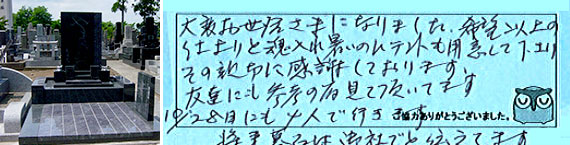 大変お世話さまになりました、希望以上の
仕上りと魂入れ暑いのにテントも用意して下さり
その親切に感謝しております
友達にも参考の為見て頂いてます
10/28日にも 4人で行きます
ご協力ありがとうございました。
将来墓石は御社でと伝えてます